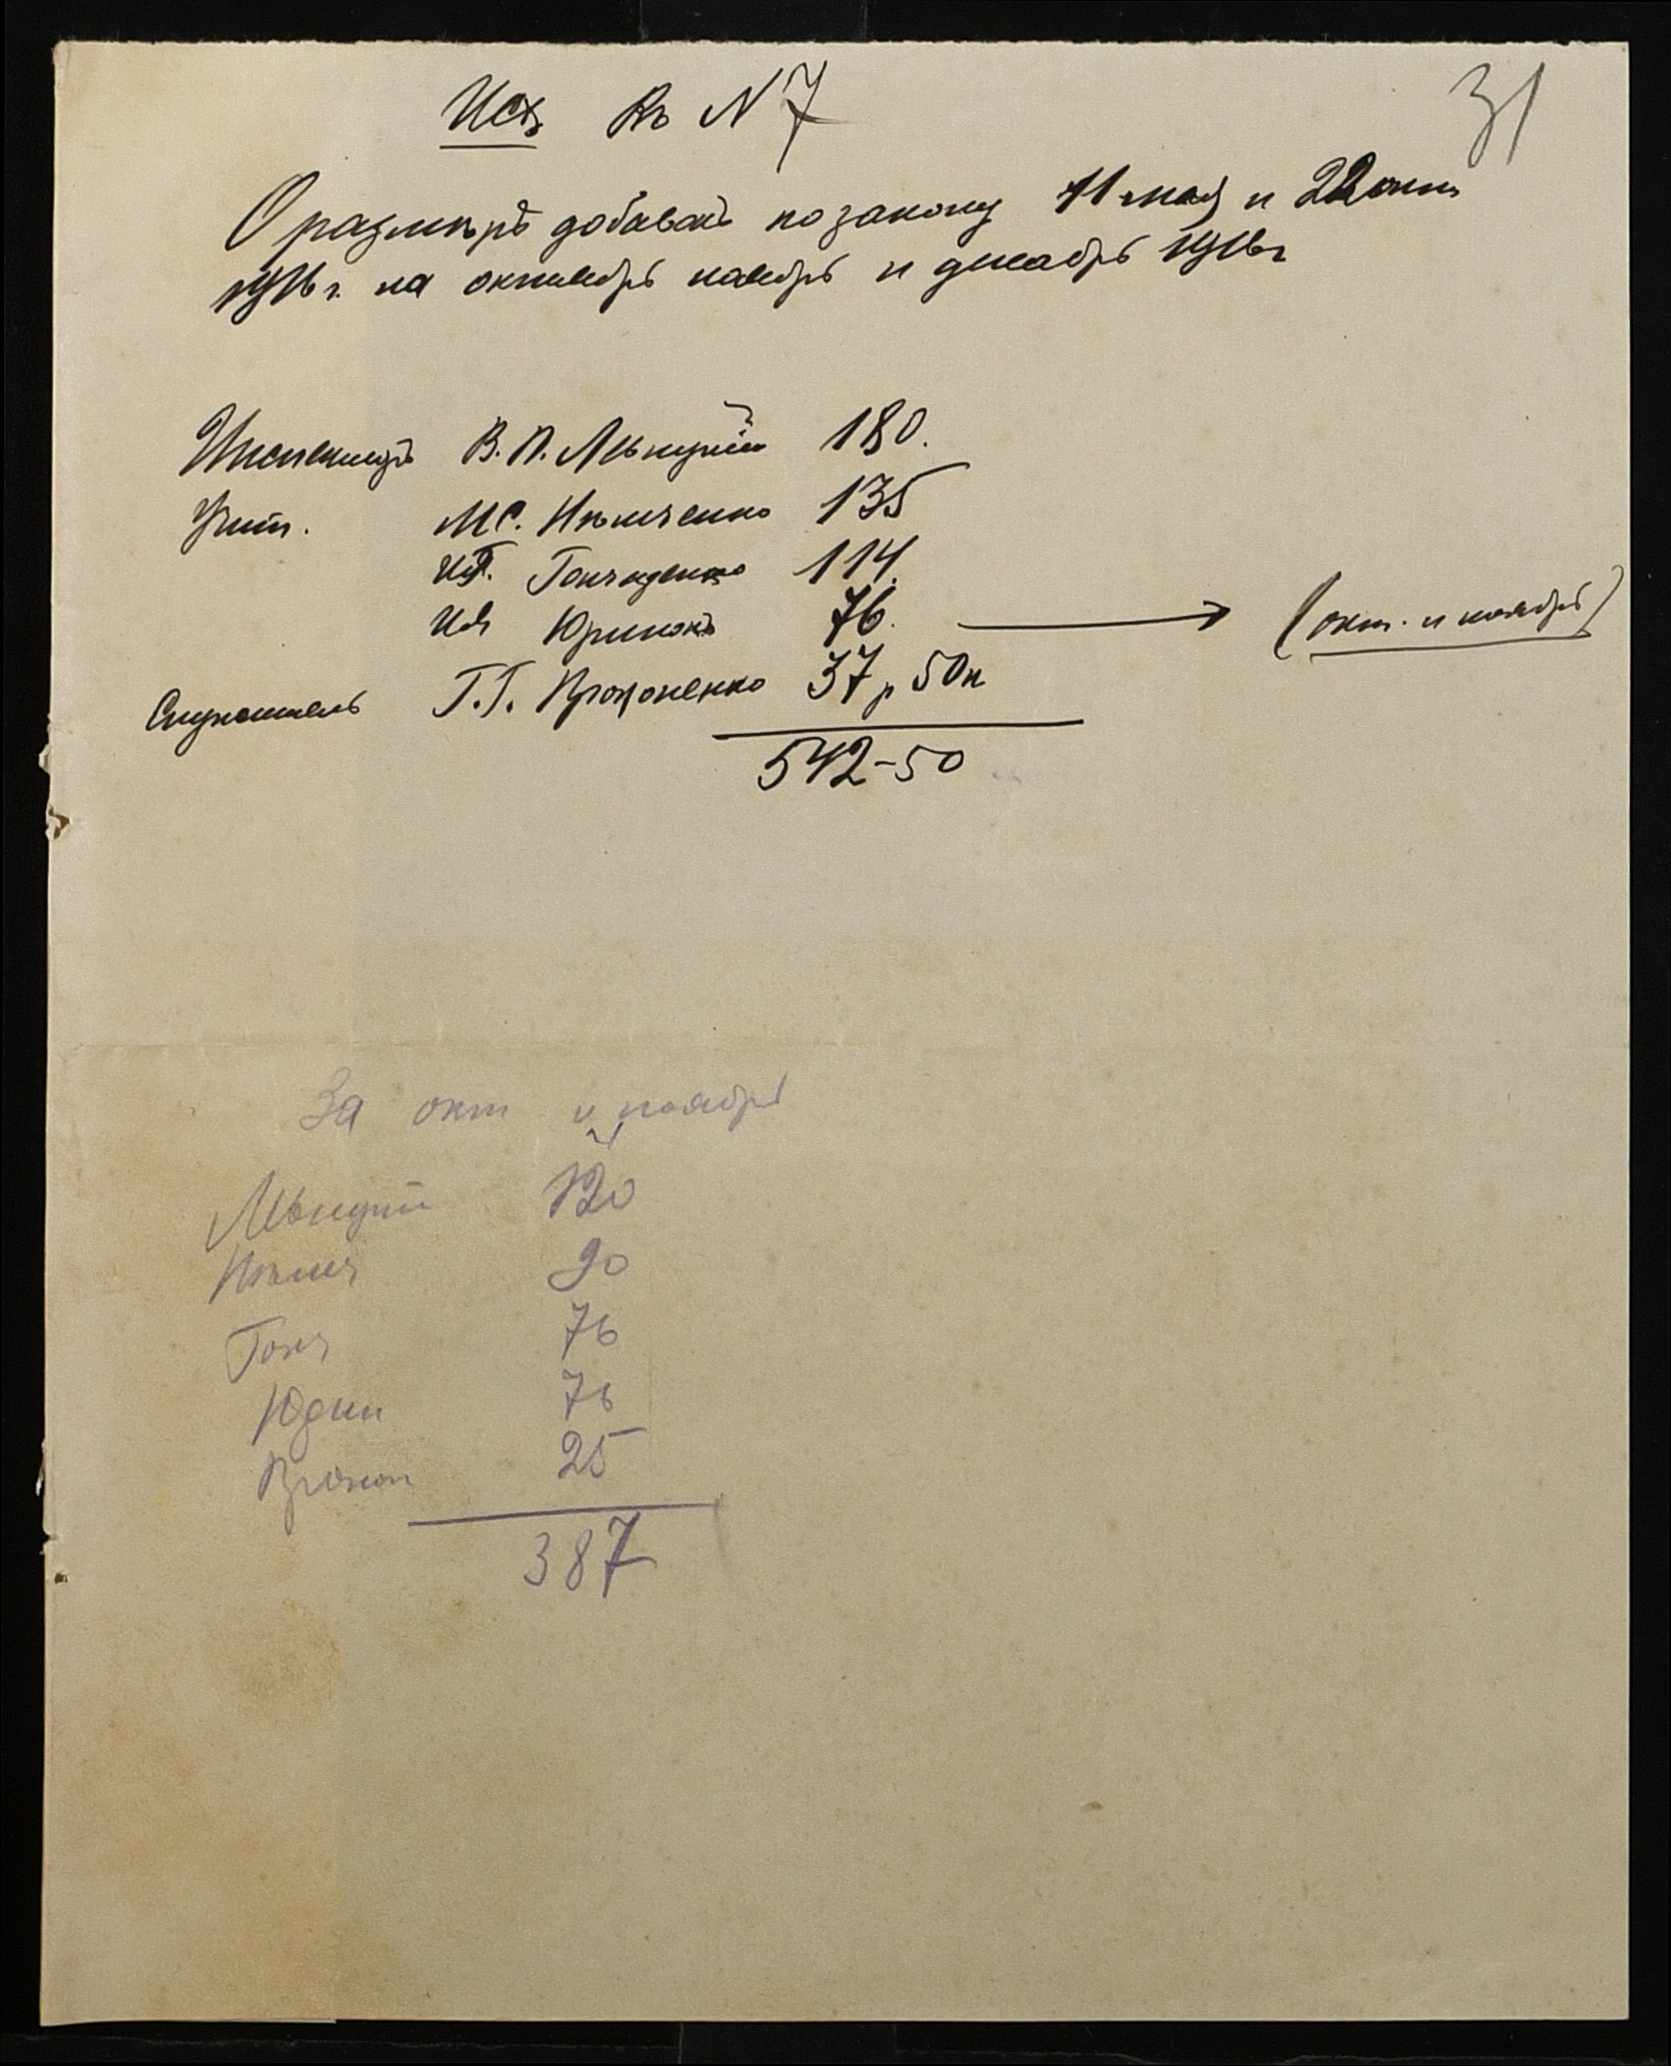 31
Исх. Къ N 7
О размѣрѣ добавокъ по закону 11 мая и 22 окт.
1916 г. на октябрь ноябрь и декабрь 1916 г
Инспекторъ В. П. Львицкій 180.
Учит. М С. Ильченко 135
И.Т. Гончаренко 114.
Юринокъ 76. (окт. и ноябрь)
Слушатель Г. Г. Прокопенко 37 р 50 к
542-50
За окт и ноябрь
Львицкій 120
90
Гонч 76
Юрин 76
Прокоп 25
387